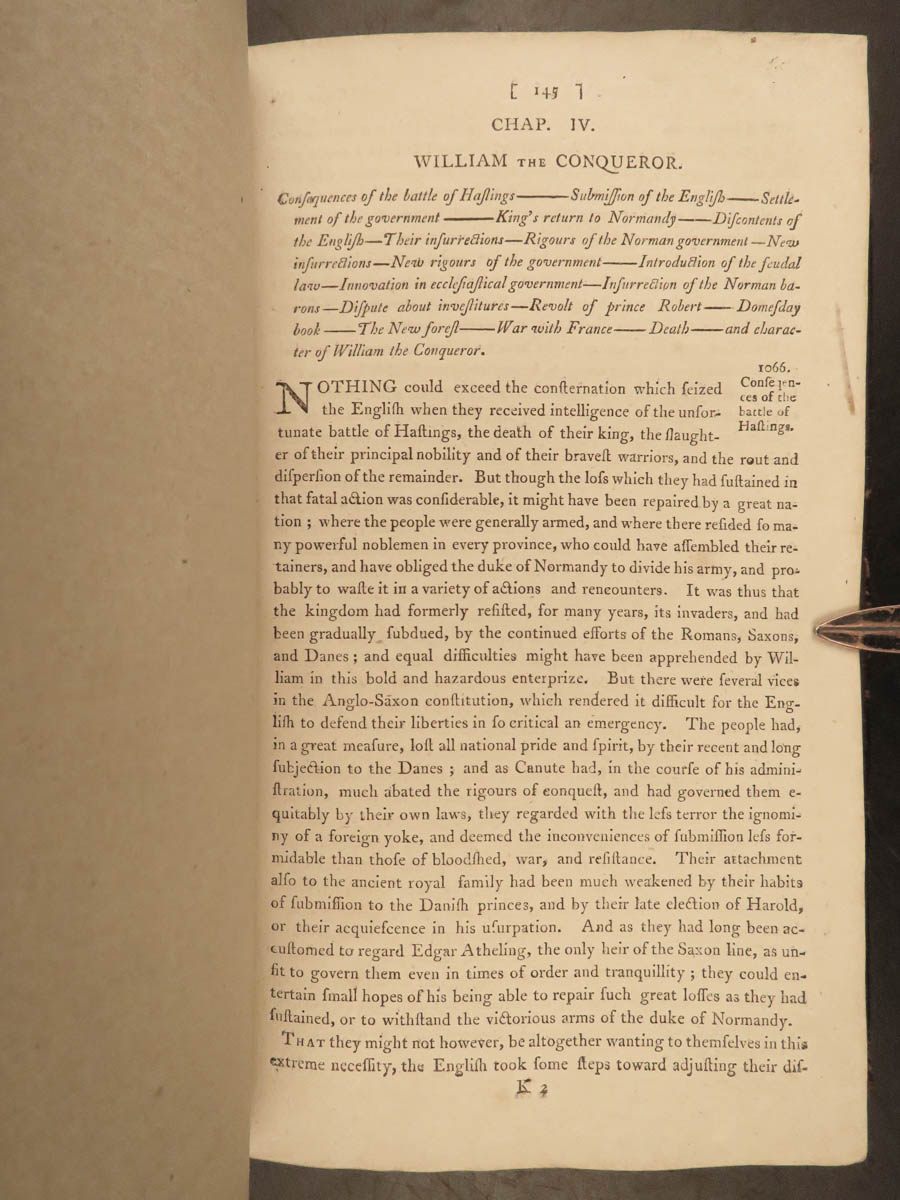 [ 145 ]
CHAP. IV.
WILLIAM THE CONQUEROR.
Conſequences of the battle of Haſtings——Submiſſion of the Engliſh——Settle-
ment of the government ——King's return to Normandy——Diſcontents of
the Engliſh—Their inſurrections—Rigours of the Norman government—New
inſurrections—New rigours of the government——Introduction of the feudal
law—Innovation in eccleſiaſtical government—Inſurrection of the Norman ba-
rons—Diſpute about inveſtitures—Revolt of prince Robert—— Domeſday
book ——The New foreſt——War with France——Death——and charac-
ter of William the Conqueror.
1066.
Conſe en-
ces of the
battle of
Haſtings.
NOTHING could exceed the conſternation which ſeized
the Engliſh when they received intelligence of the unfor-
tunate battle of Haſtings, the death of their king, the ſlaught-
er of their principal nobility and of their braveſt warriors, and the rout and
diſperſion of the remainder. But though the loſs which they had ſuſtained in
that fatal action was conſiderable, it might have been repaired by a great na-
tion ; where the people were generally armed, and where there reſided ſo ma-
ny powerful noblemen in every province, who could have aſſembled their re-
tainers, and have obliged the duke of Normandy to divide his army, and pro-
bably to waſte it in a variety of actions and rencounters. It was thus that
the kingdom had formerly reſiſted, for many years, its invaders, and had
been gradually ſubdued, by the continued efforts of the Romans, Saxons,
and Danes ; and equal difficulties might have been apprehended by Wil-
liam in this bold and hazardous enterprize. But there were ſeveral vices
in the Anglo-Saxon conſtitution, which rendered it difficult for the Eng-
liſh to defend their liberties in ſo critical an emergency. The people had,
in a great meaſure, loſt all national pride and ſpirit, by their recent and long
ſubjection to the Danes ; and as Canute had, in the courſe of his admini-
ſtration, much abated the rigours of eonqueſt, and had governed them e-
quitably by their own laws, they regarded with the leſs terror the ignomi-
ny of a foreign yoke, and deemed the inconveniences of ſubmiſſion leſs for-
midable than thoſe of bloodſhed, war, and reſiſtance. Their attachment
alſo to the ancient royal family had been much weakened by their habits
of ſubmiſſion to the Daniſh princes, and by their late election of Harold,
or their acquieſcence in his uſurpation. And as they had long been ac-
cuſtomed to regard Edgar Atheling, the only heir of the Saxon line, as un-
fit to govern them even in times of order and tranquillity ; they could en-
tertain ſmall hopes of his being able to repair ſuch great loſſes as they had
ſuſtained, or to withſtand the victorious arms of the duke of Normandy.
THAT they might not however, be altogether wanting to themſelves in this
extreme neceſſity, the Engliſh took ſome ſteps toward adjuſting their diſ-
K 2